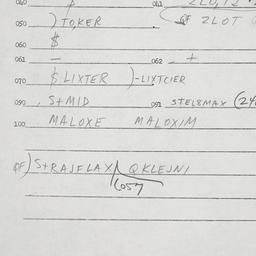 050 ) TOKER QF 2LOT
060 $
061 — 062 +
070 $ LIXTER )-LIXTCIER
090 S+MID 091 STEL8MAX (24
100 MALOXE MALOXIM
QF) S+RAJFLAX QKLEJNI